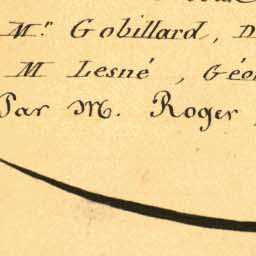 Mr. Gobillard, D
M Lesné, Géo
Par M. Roger